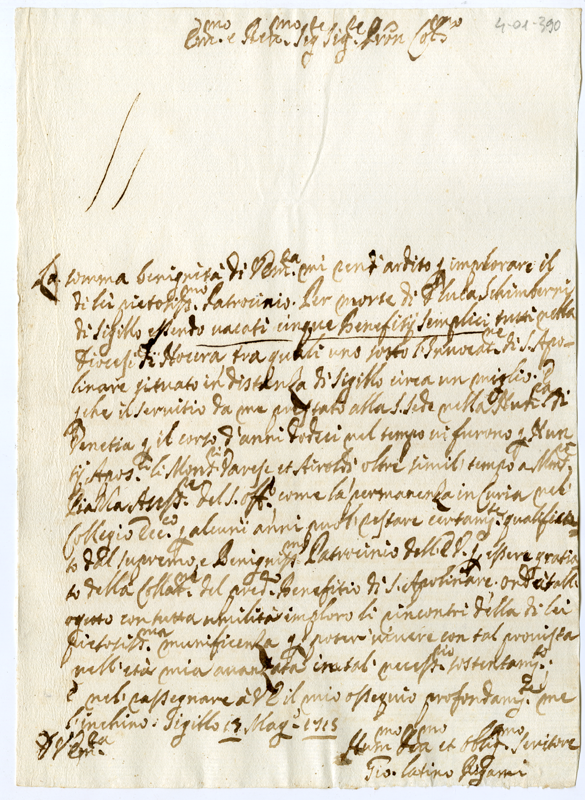 4-01-390
Em.mo e Rev.mo Sig.r Sig.r Pron Col.mo
La somma benignità di V. Em.za mi rend' ardito q implorare il
di lei pietosiss.mo Patrocinio. Per morte di D. Luca Schimberni
di Sigillo essendo vacati cinque Benefitij semplici tutti nella
Diocesi di Nocera tra quali uno sotto l'Invocat.ne di S. Apo-
linare situato in distanza di Sigillo circa un miglio.
che il servitio da me prestato alla S. Sede nella Nuti.a di
Venetia q il corso d'anni dodeci nel tempo vi furono q Nun
tij Apos.ci li Mons.ri Varese et Airoldi oltre simil tempo a
del S. Off.o come la permanenza in Curia nel
Collegio q alcuni anni restare certam.te qualifica
to dal supremo, e Benigniss.mo Patrocinio dell' E.V. q essere gratia
to della Collat.ne del pred.o Benefitio di S. Apolinare. Ond'
con tutta umiltà imploro li rincontri della di lei
pietosiss.ma munificenza q poter vivere con tal provista
nell'età mia avanzata in tal necess.rio sostentam.to
E nel rassegnare à V.E. il mio ossequio profondam.te me
l'inchino. Sigillo 13 Mag.o 1715
D V. Em.za
Hum.mo Dev.mo et Oblig.mo Servitore
Gio. Latino